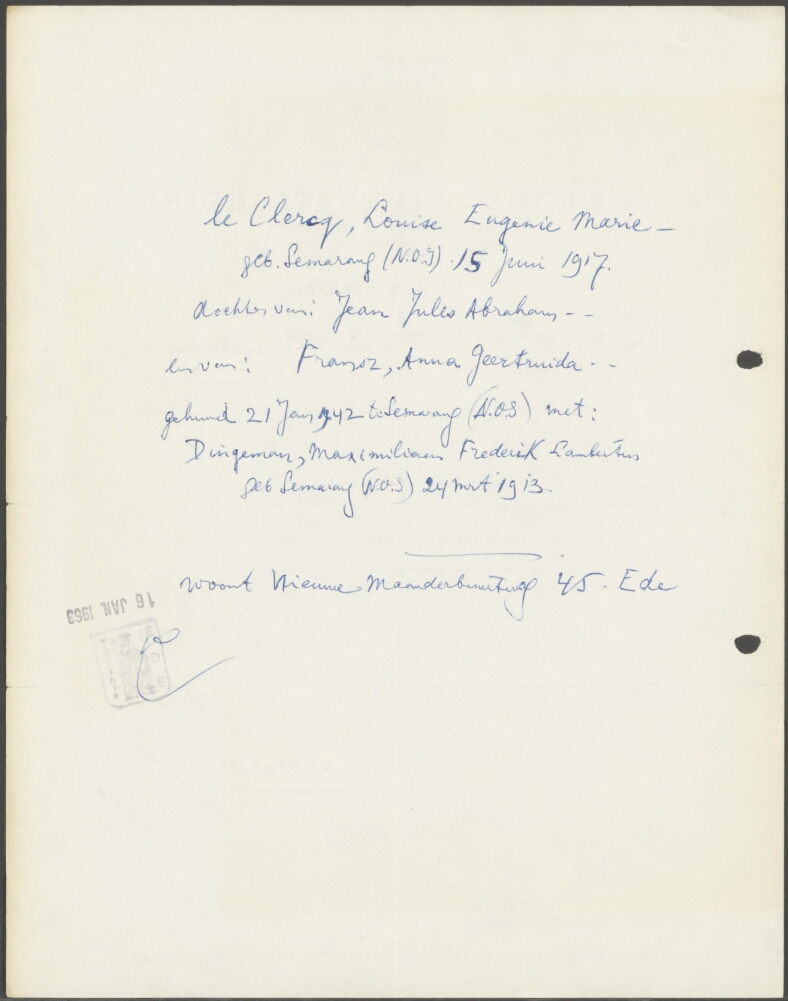 le Clercq, Louise Eugenie Marie -
geb. Semarang (N.O.I) 15 Juni 1917.
dochter van: Jean Jules Abraham - -
en van: Fransz, Anna Geertruida - -
gehuwd 21 Jan 1942 te Semarang (N.O.I) met:
Dingeman, Maximiliaan Frederik Lambertus
geb Semarang (N.O.I) 24 mrt 1913 -
woont Nieuwe Maanderbuurtweg 45 - Ede
16 JAN. 1963